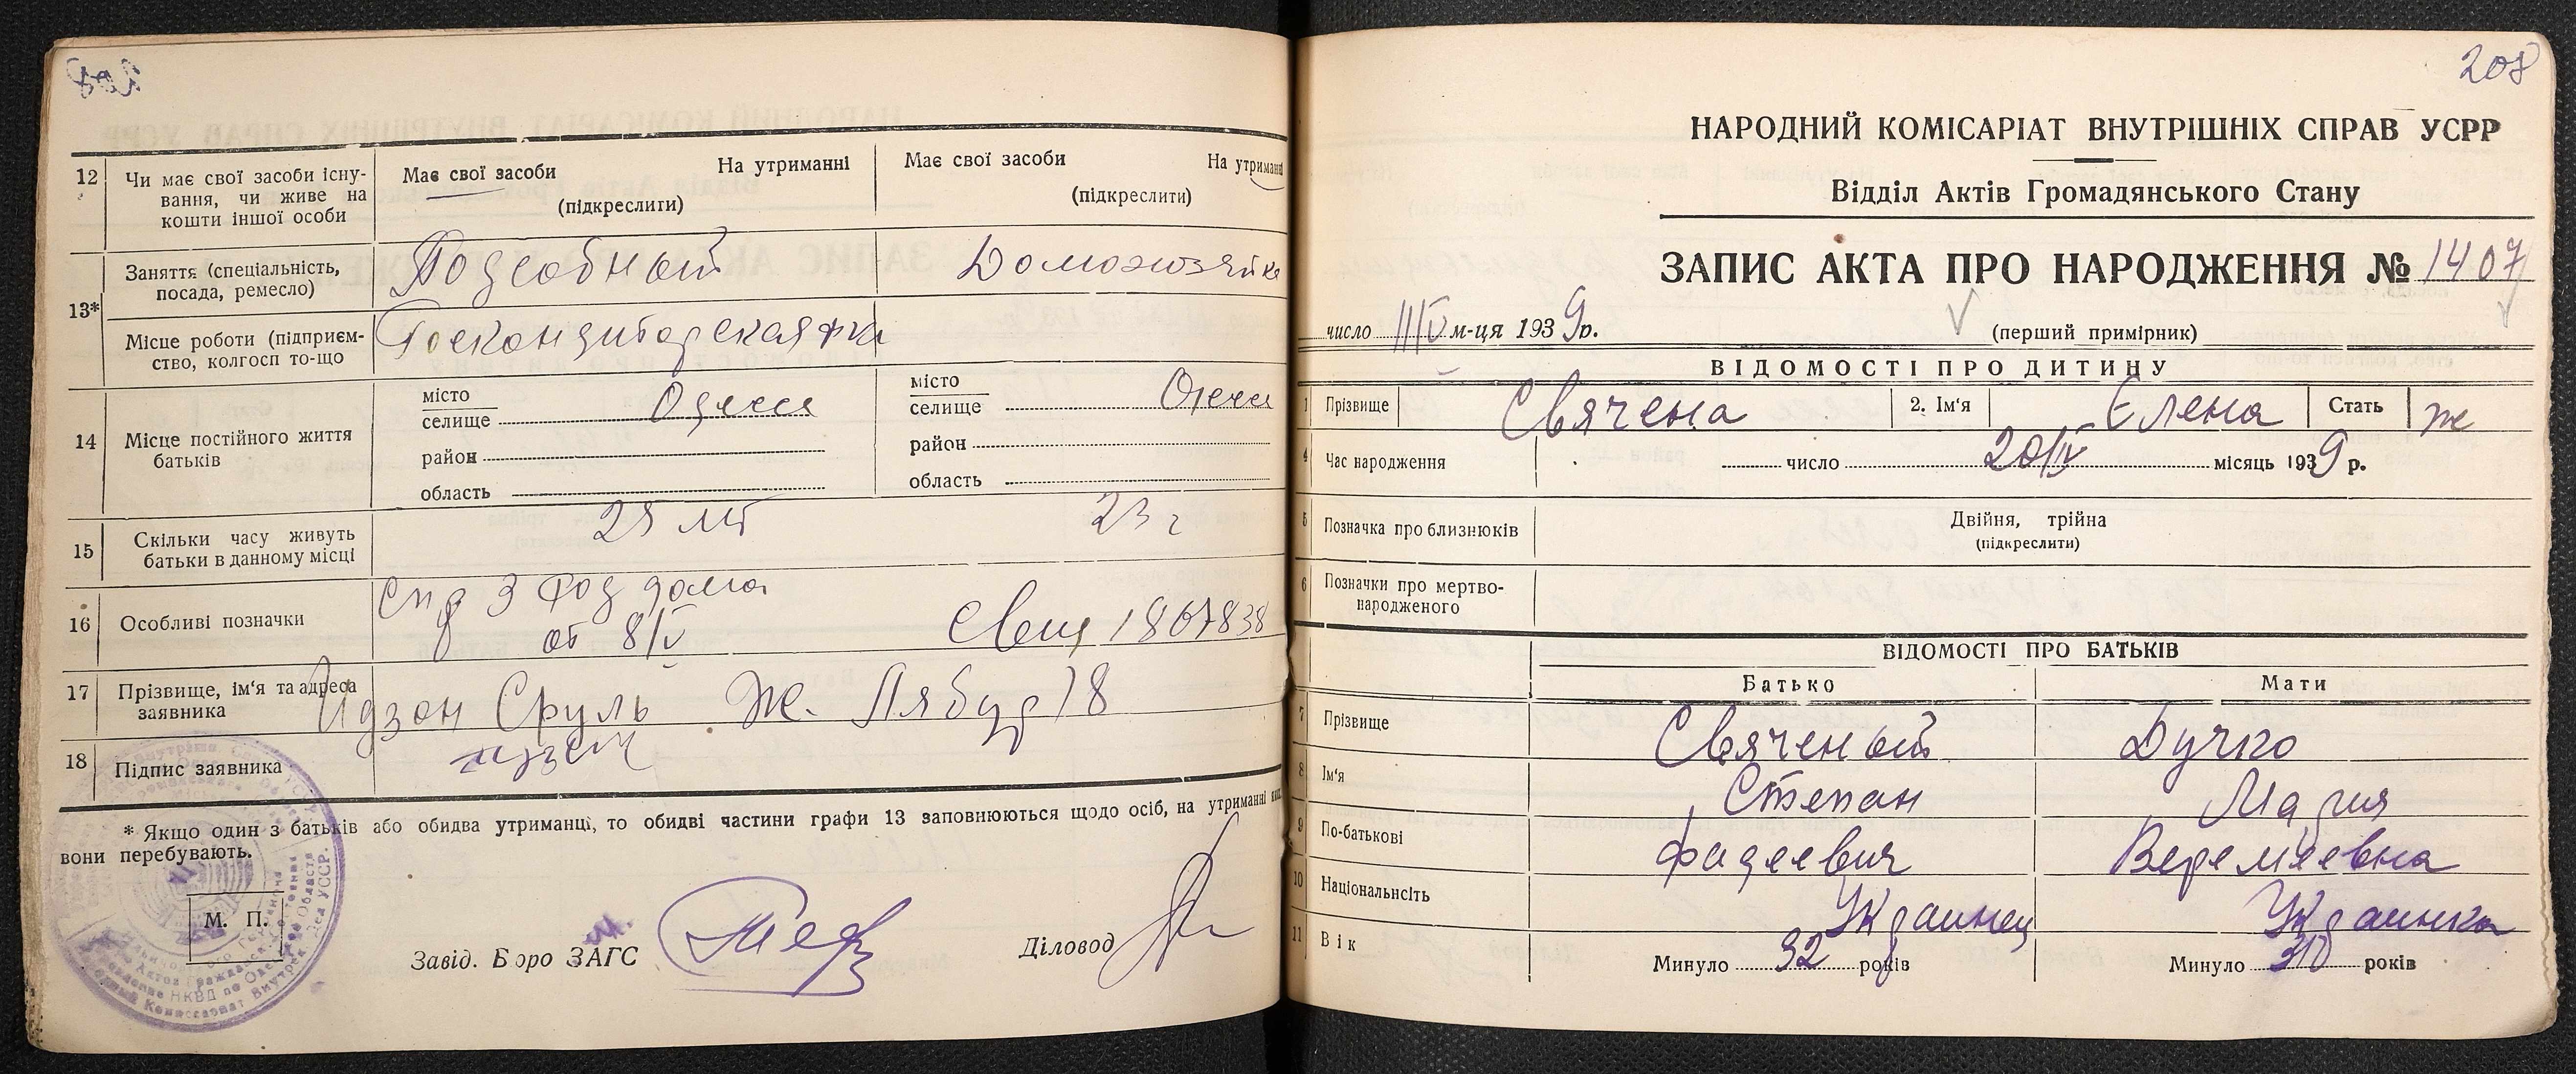 12 Чи має свої засоби існу-
вання, чи живе на
кошти іншої особи
Має свої засоби На утриманні
(підкреслити)
Має свої засоби На утриманні
(підкреслити)
13* Заняття (спеціальність,
посада, ремесло)
Подсобный Домохозяйка
Місце роботи (підприєм-
ство, колгосп то-що
Госкондиторская ф-ка
14 Місце постійного життя
батьків
місто
селище Одесса
район
область
місто
селище Одесса
район
область
15 Скільки часу живуть
батьки в данному місці
25 лет 23 г
16 Особливі позначки
Спр 3 Род дома
от 8/V Свид 1867838
17 Прізвище, ім'я та адреса
заявника
Идзон Сруль Ж. 18
18 Підпис заявника
* Якщо один з батьків або обидва утриманці, то обидві частини графи 13 заповнюються щодо осіб, на утриманні яких
вони перебувають.
М. П.
Завід. Бюро ЗАГС
Діловод
208
НАРОДНИЙ КОМІСАРІАТ ВНУТРІШНІХ СПРАВ УСРР
Відділ Актів Громадянського Стану
ЗАПИС АКТА ПРО НАРОДЖЕННЯ № 1407
число 11/V м-ця 1939 р.
(перший примірник)
ВІДОМОСТІ ПРО ДИТИНУ
1 Прізвище Свячена 2. Ім'я Елена Стать ж
4 Час народження число 20/IV місяць 1939 р.
5 Позначка про близнюків Двійня, трійна
(підкреслити)
6 Позначки про мертво-
народженого
ВІДОМОСТІ ПРО БАТЬКІВ
Батько Мати
7 Прізвище Свяченый Дучко
8 Ім'я Степан Мария
9 По-батькові Фадеевич Веремеевна
10 Національнсіть Украинец Украинка
11 Вік Минуло 32 років Минуло 30 років